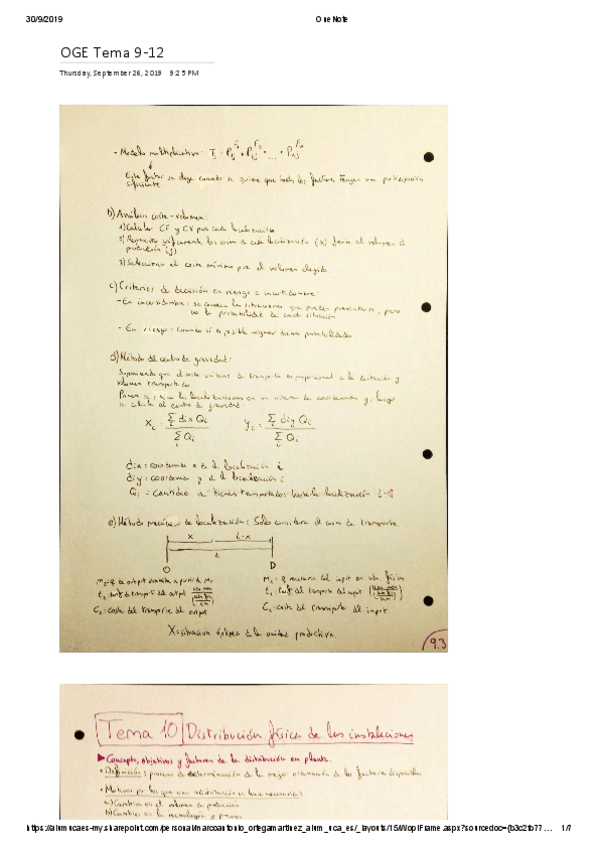 30/9/2019
OneNote
OGE Tema 9-12
Thursday, September 26, 2019 9:25 PM
- Modelo multiplicativo:
Este factor se elige cuando se quiere que todos los factores tengan una participación
suficiente
b) Análisis coste-volumen:
1) Calcular CF y CV por cada localización
2) Representar gráficamente los costes de cada localización (x) frente al volumen de
producción (y)
3) Seleccionar el coste mínimo por el volumen elegido
c) Criterios de decisión en riesgo e incertidumbre:
- En incertidumbre: se conocen las situaciones que pueden presentarse, pero
no la probabilidad de cada situación
- En riesgo: cuando sí es posible asignar dichas probabilidades
d) Método del centro de gravedad:
Suponiendo que el coste unitario de transporte es proporcional a la distancia y
volumen transportado.
las localizaciones en un sistema de coordenadas y, luego
se calcula el centro de gravedad:
Xc = Σ dix Qi / Σ Qi Yc = Σ diy Qi / Σ Qi
dix = coordenada x de la localización i
diy = coordenada y de la localización i
Qi = cantidad de bienes transportados hasta la localización i
e) Método mecánico de localización: Solo considera el coste de transporte
x L-x
L
O D
C₂ = coste del transporte del output C₁ = coste del transporte del input
X = situación óptima de la unidad productiva.
9.3
Tema 10 Distribución física de las instalaciones
Concepto, objetivos y factores de la distribución en planta.
• Definición: proceso de determinación de la mejor ordenación de los factores disponibles
• Motivos por los que una redistribución se hace necesaria:
a) Cambios en el volumen de producción
b) Cambios en la tecnología y proceso
https://alumnucaes-my.sharepoint.com/personal/marcoantonio_ortegamartinez_alum_uca_es/_layouts/15/WopiFrame.aspx?sourcedoc={b3c2fb77…
1/7